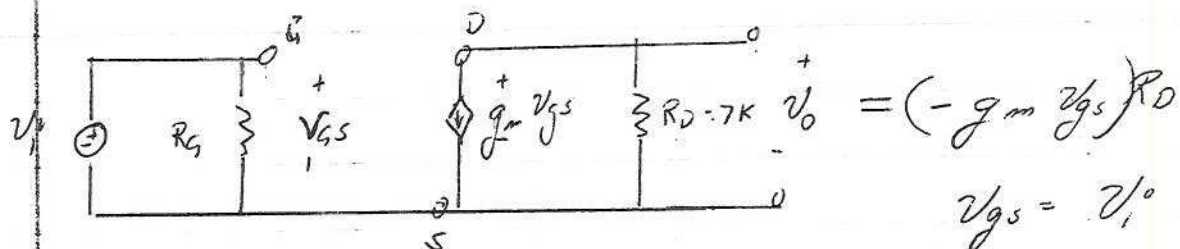 G D
+ + +
v_i R_G V_GS g_m v_gs R_D = 7K v_o = (-g_m v_gs) R_D
- -
v_gs = v_i
S